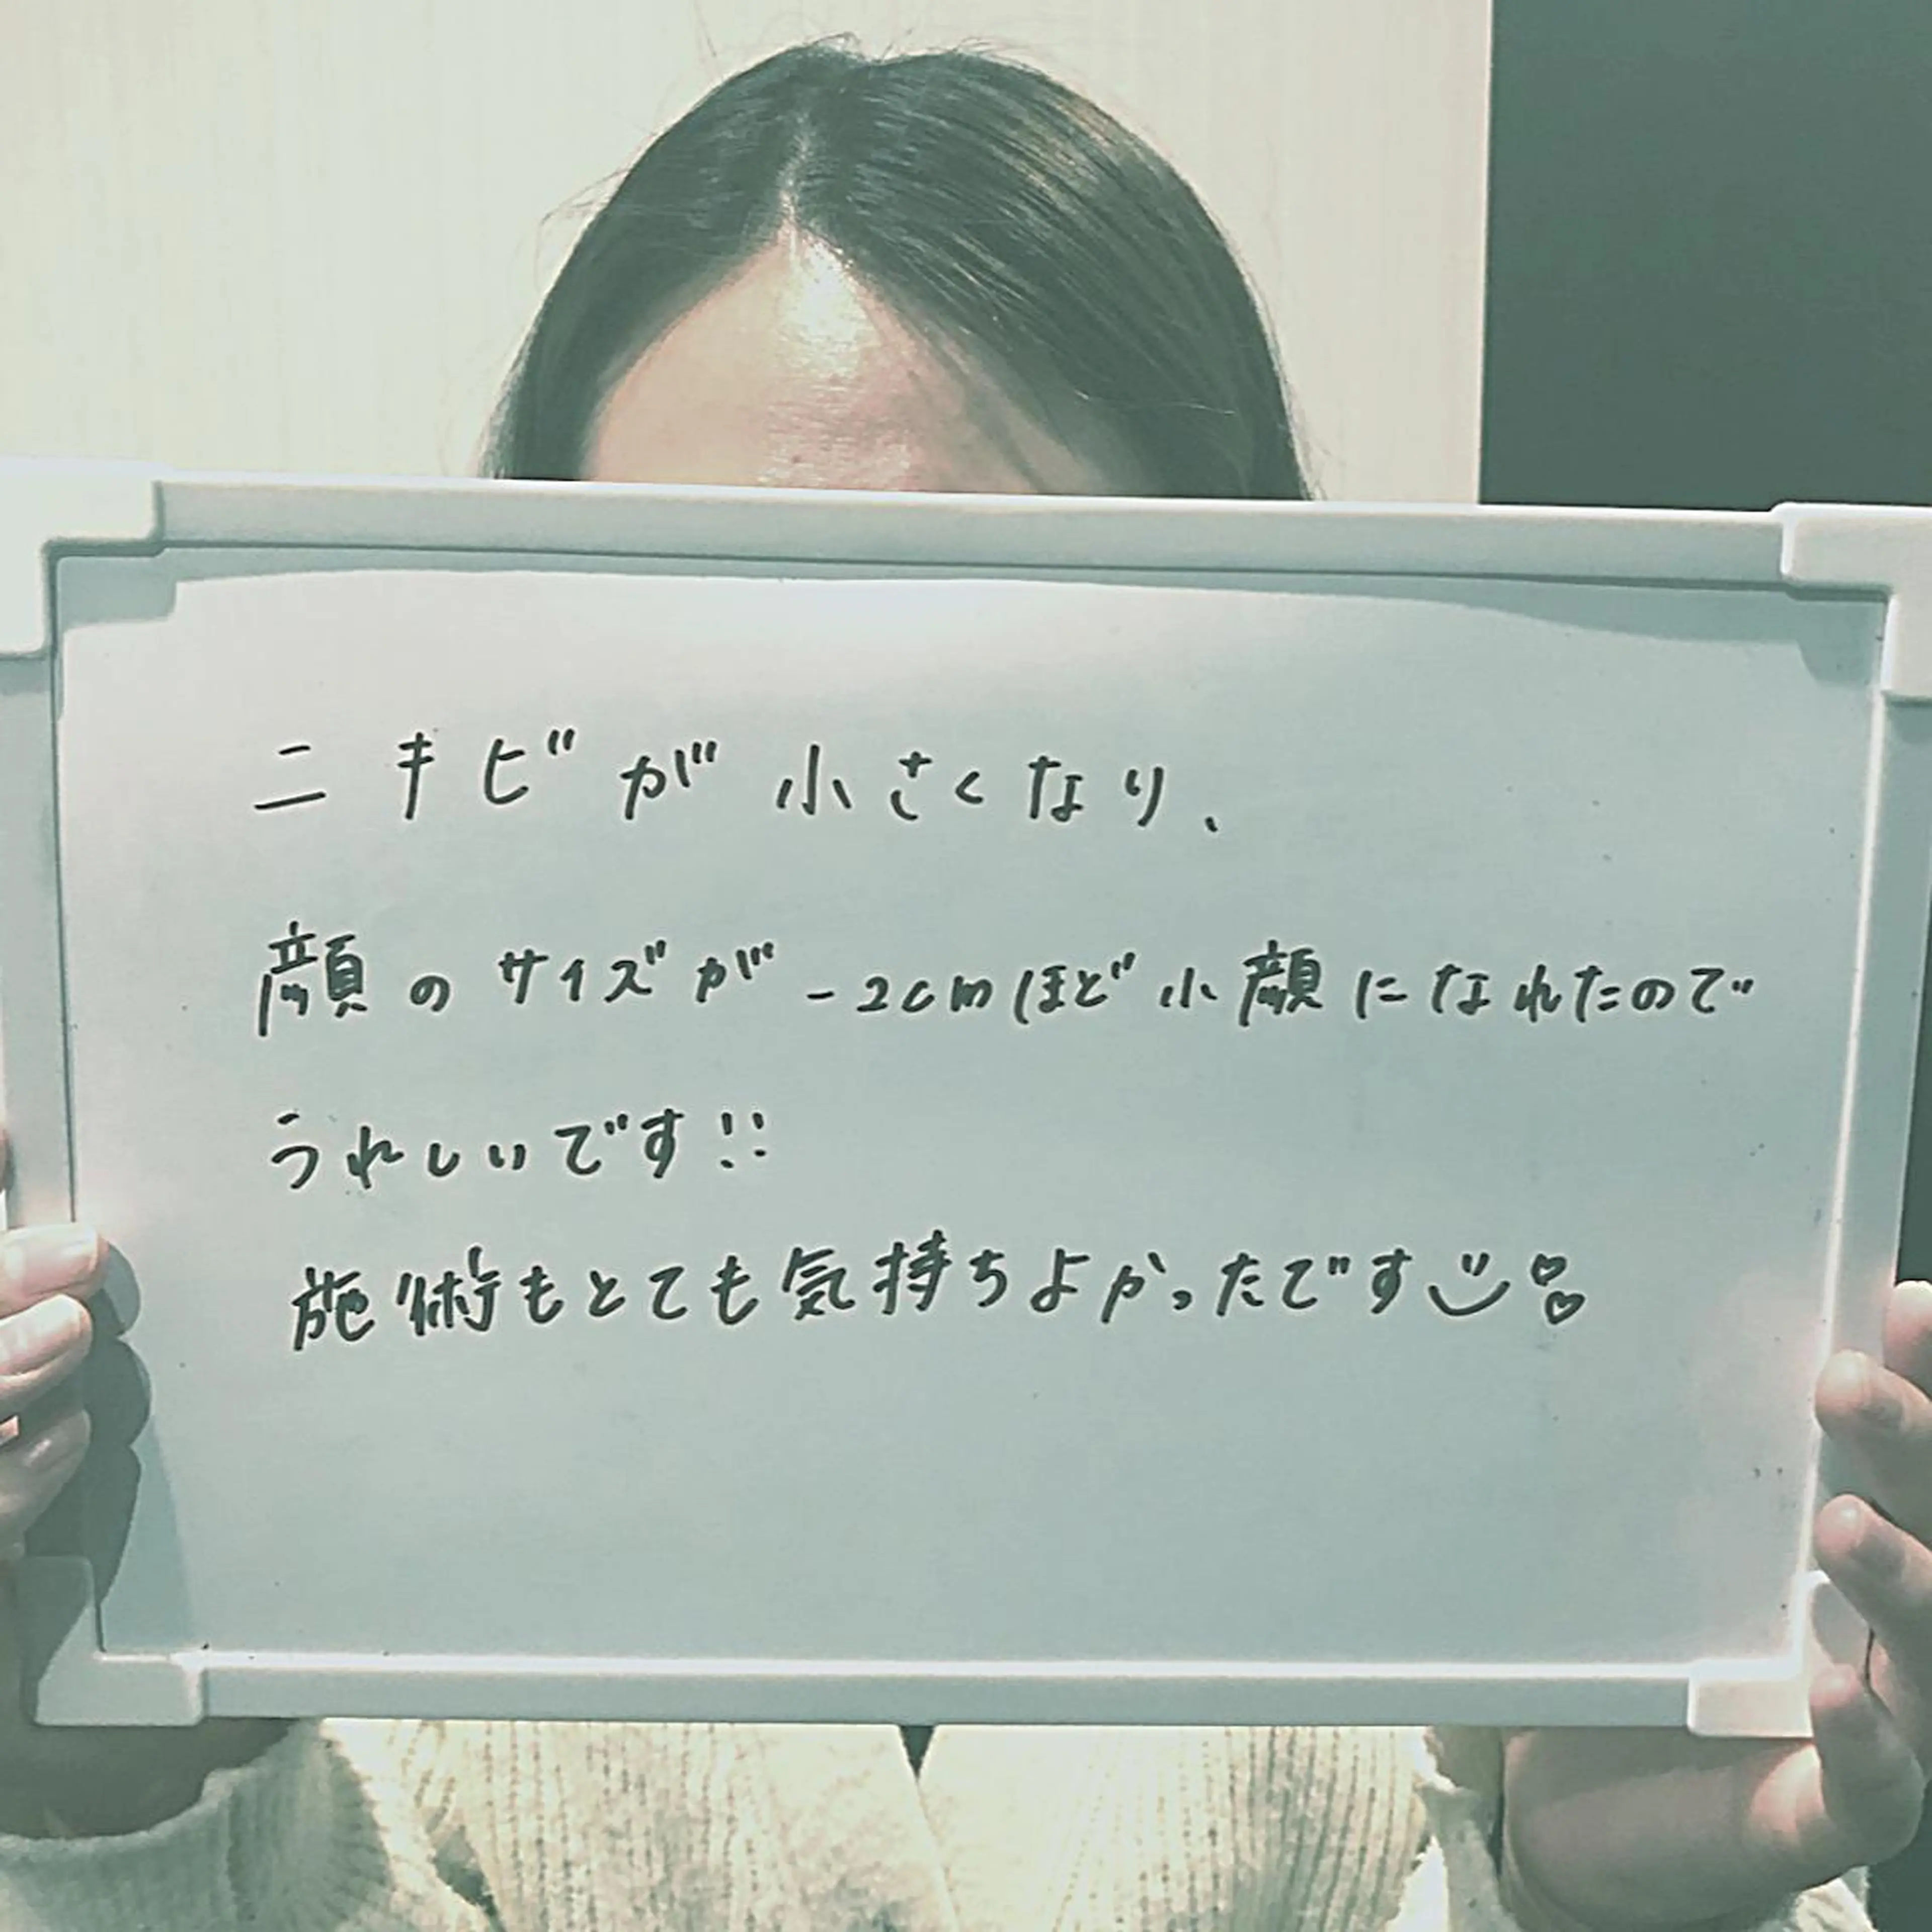 ニキビが小さくなり、
顔のサイズが-2cmほど小顔になれたので
うれしいです!!
施術もとても気持ちよかったです